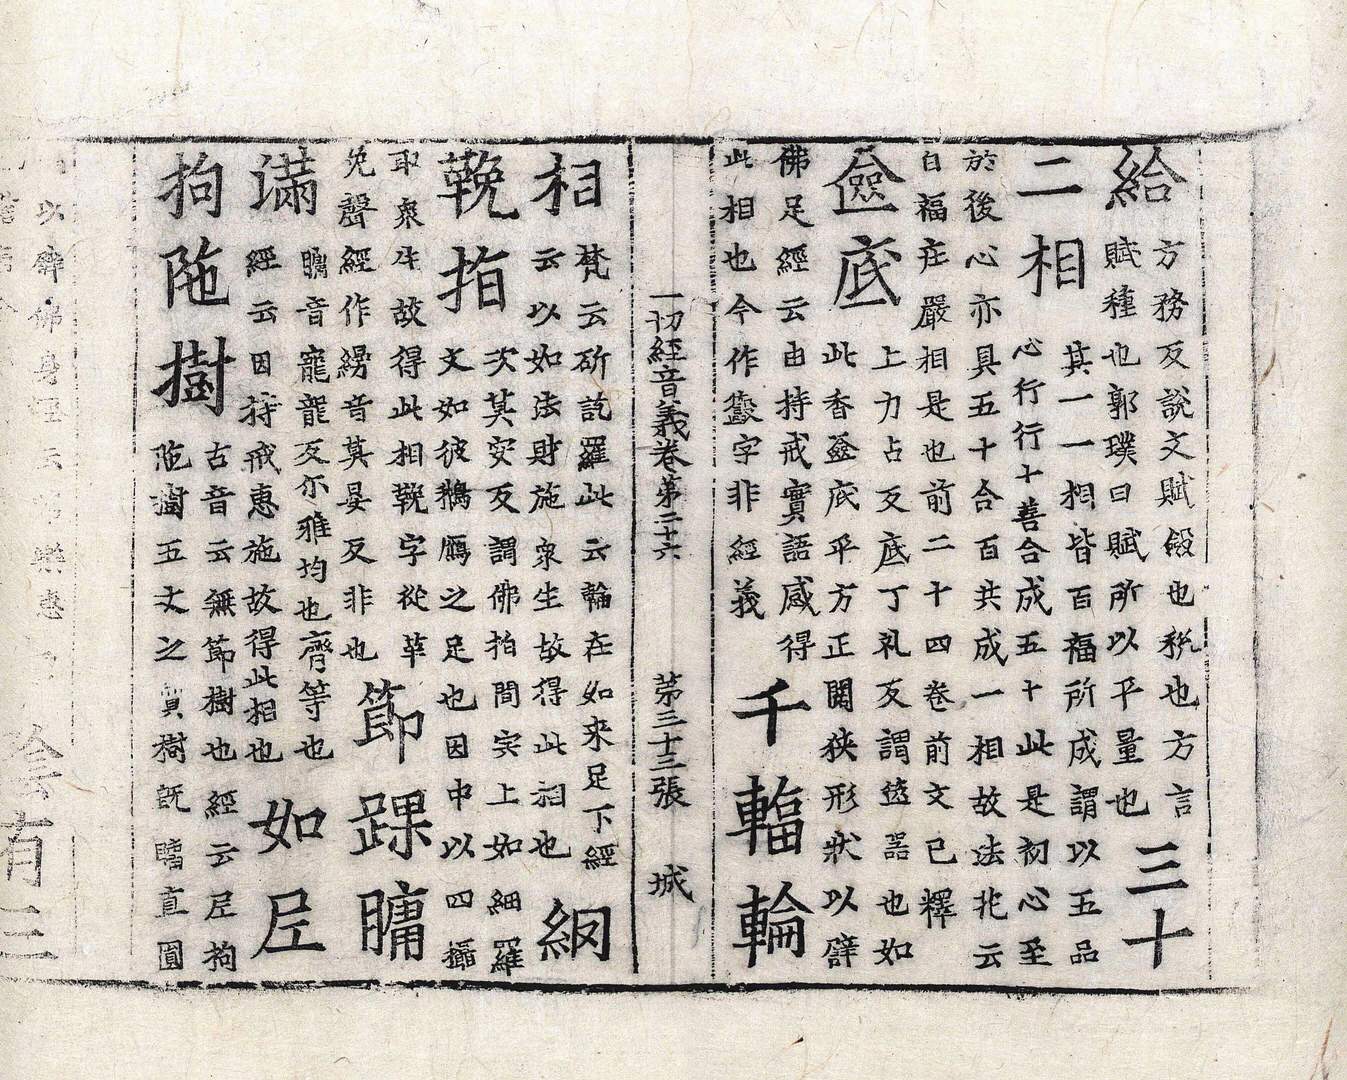 給
方務反說文賦斂也稅也方言
賦種也郭璞曰賦所以平量也
三十
二相
其一一相皆百福所成謂以五品
心行行十善合成五十此是初心至
於後心亦具五十合百共成一相故法花云
百福庄嚴相是也前二十四卷前文已釋
奩底
上力占反底丁礼反謂盝器也如
此香奩底平方正闊狹形狀以譬
佛足經云由持戒實語感得
此相也今作籨字非經義
千輻輪
一切經音義卷第二十六 第三十三張 城
相
梵云斫訖羅此云輪在如來足下經
云以如法財施衆生故得此相也
網
鞔指
次莫安反謂佛拍間宍上如細羅
文如彼鵝鴈之足也因中以四攝
取衆生故得此相鞔字從革
免聲經作縵音莫晏反非也
節踝𦟛
滿
𦟛音寵龍反尓雅均也齊等也
經云因持戒惠施故得此相也
如尼
拘陁樹
古音云無節樹也經云尼拘
陁樹五丈之樹旣直圓